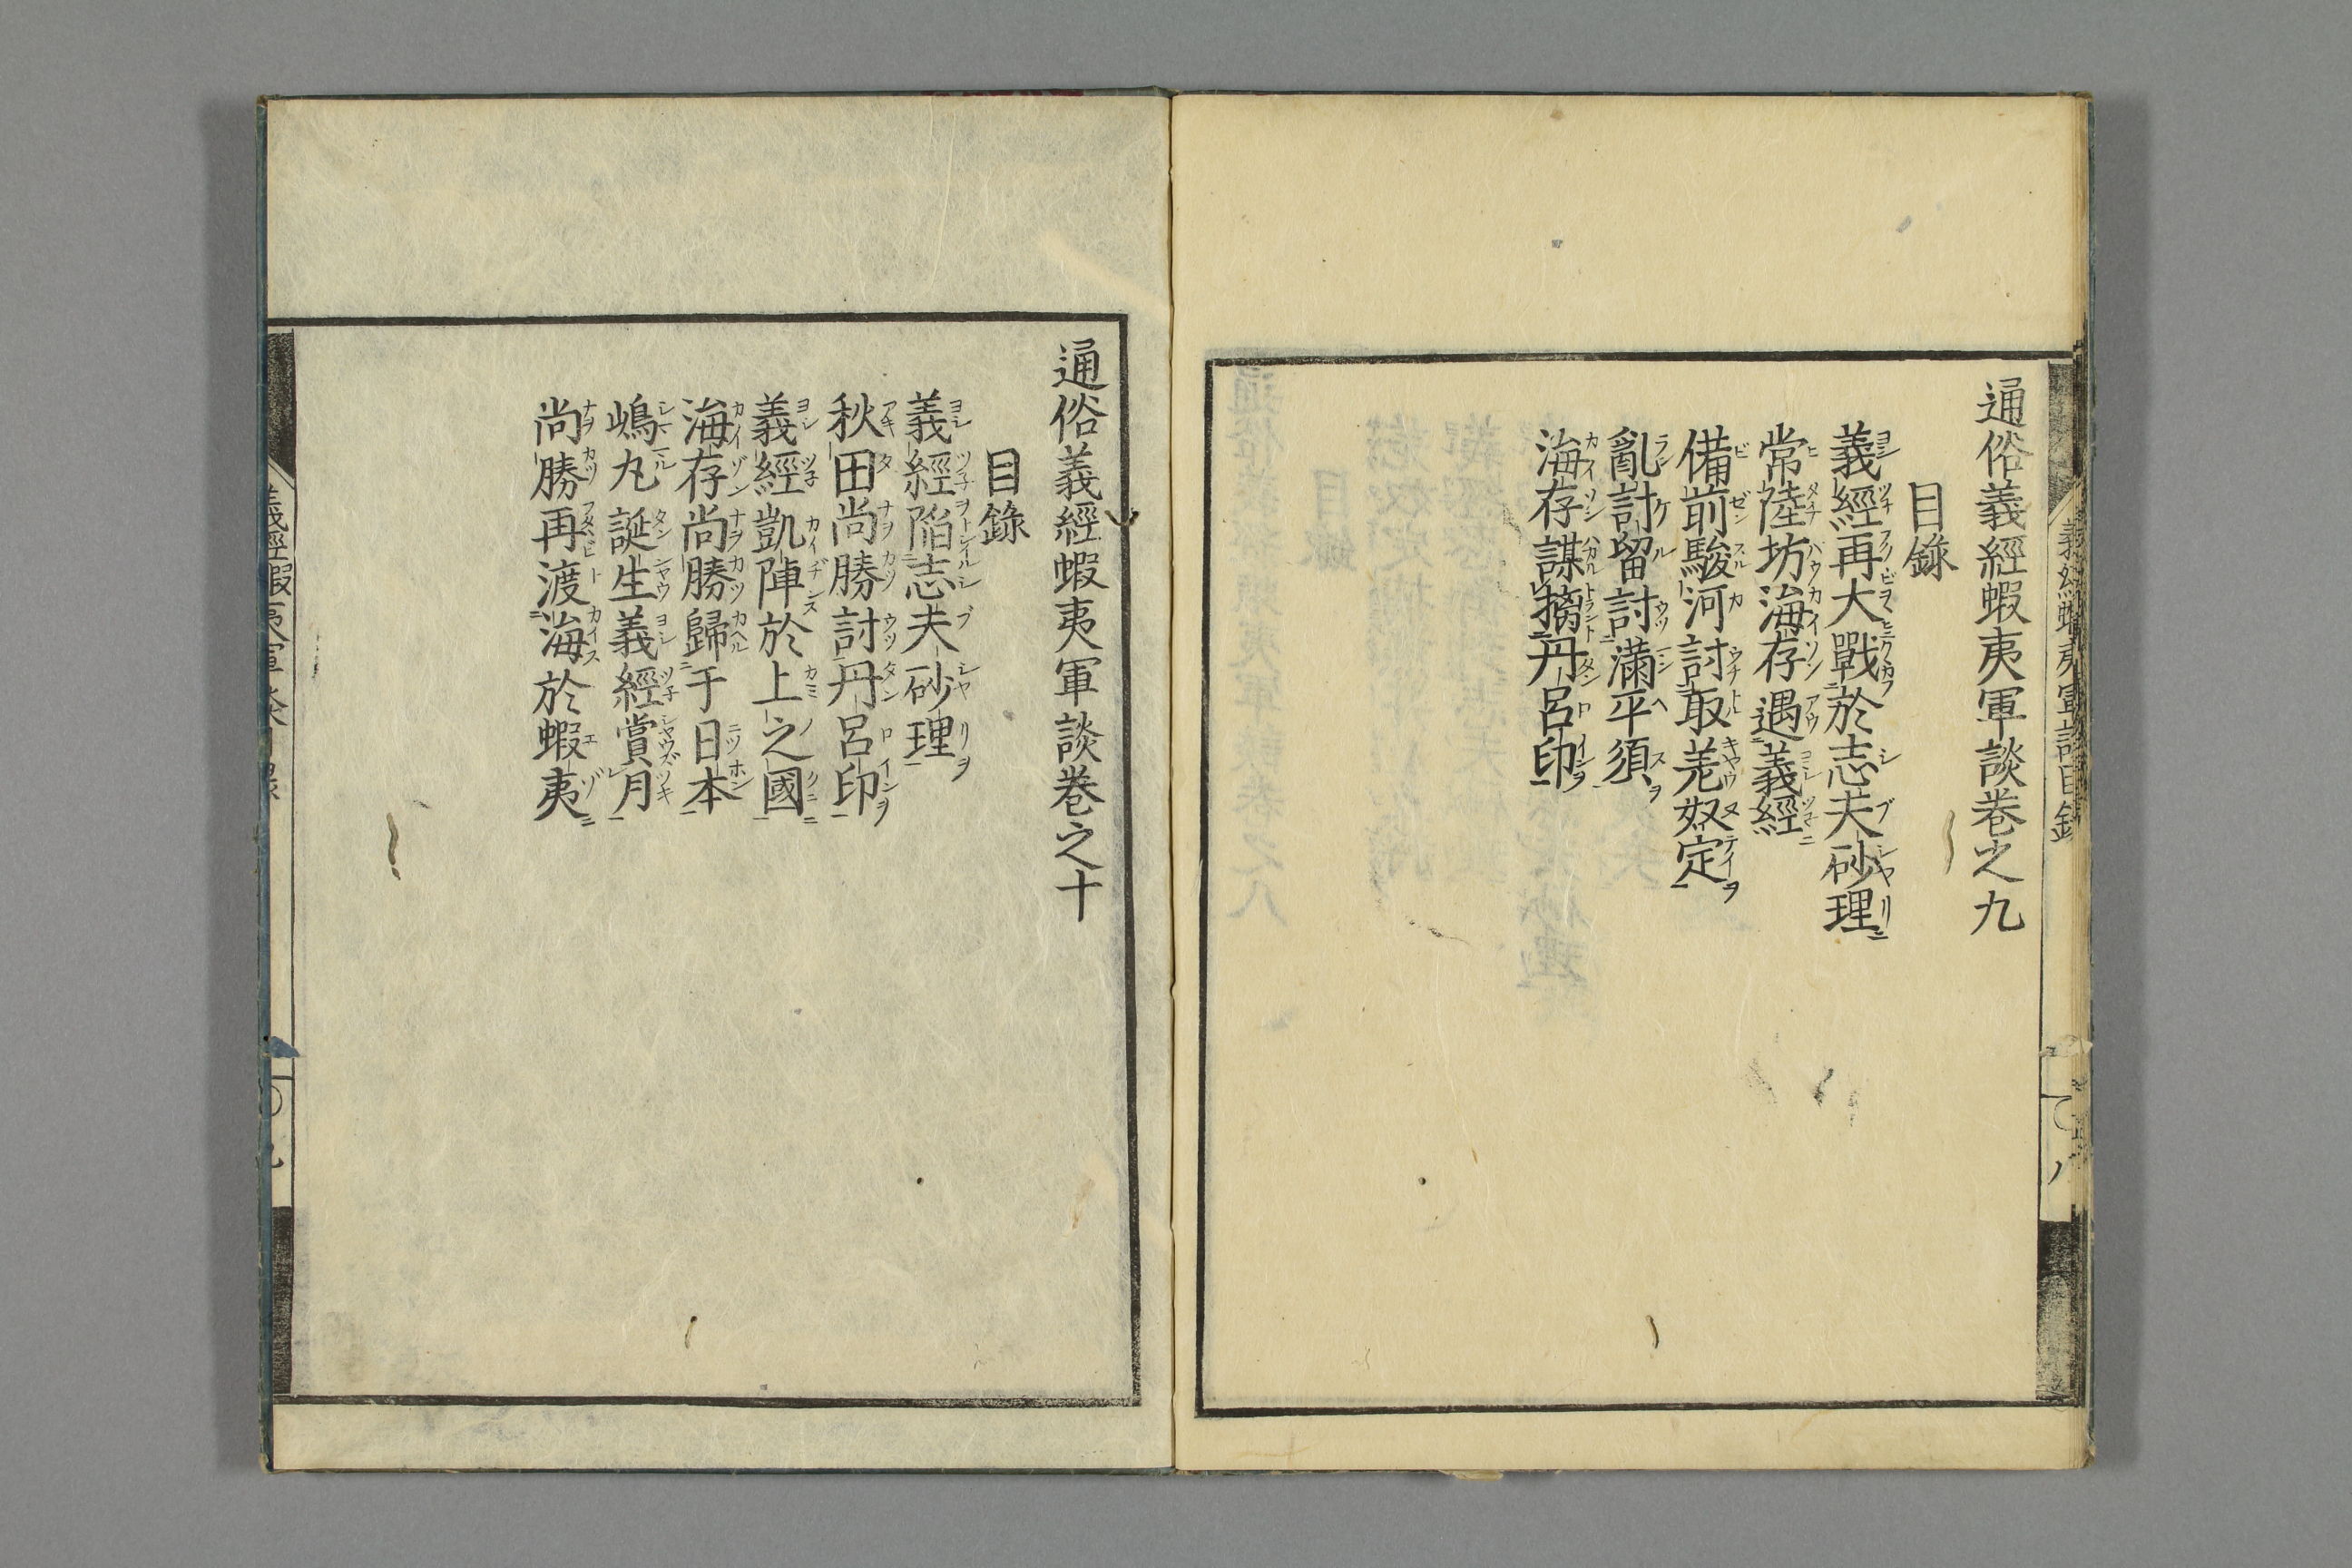 通俗義經蝦夷軍談巻之九
目錄
義經再大戰於志夫砂理
常陸坊海存遇義經
備前駿河討取羌奴定
亂討留討滿平須
海存謀擒丹呂印
通俗義經蝦夷軍談巻之十
目錄
義經陷志夫砂理
秋田尚勝討丹呂印
義經凱陣於上之國
海存尚勝歸于日本
嶋丸誕生義經賞月
尚勝再渡海於蝦夷